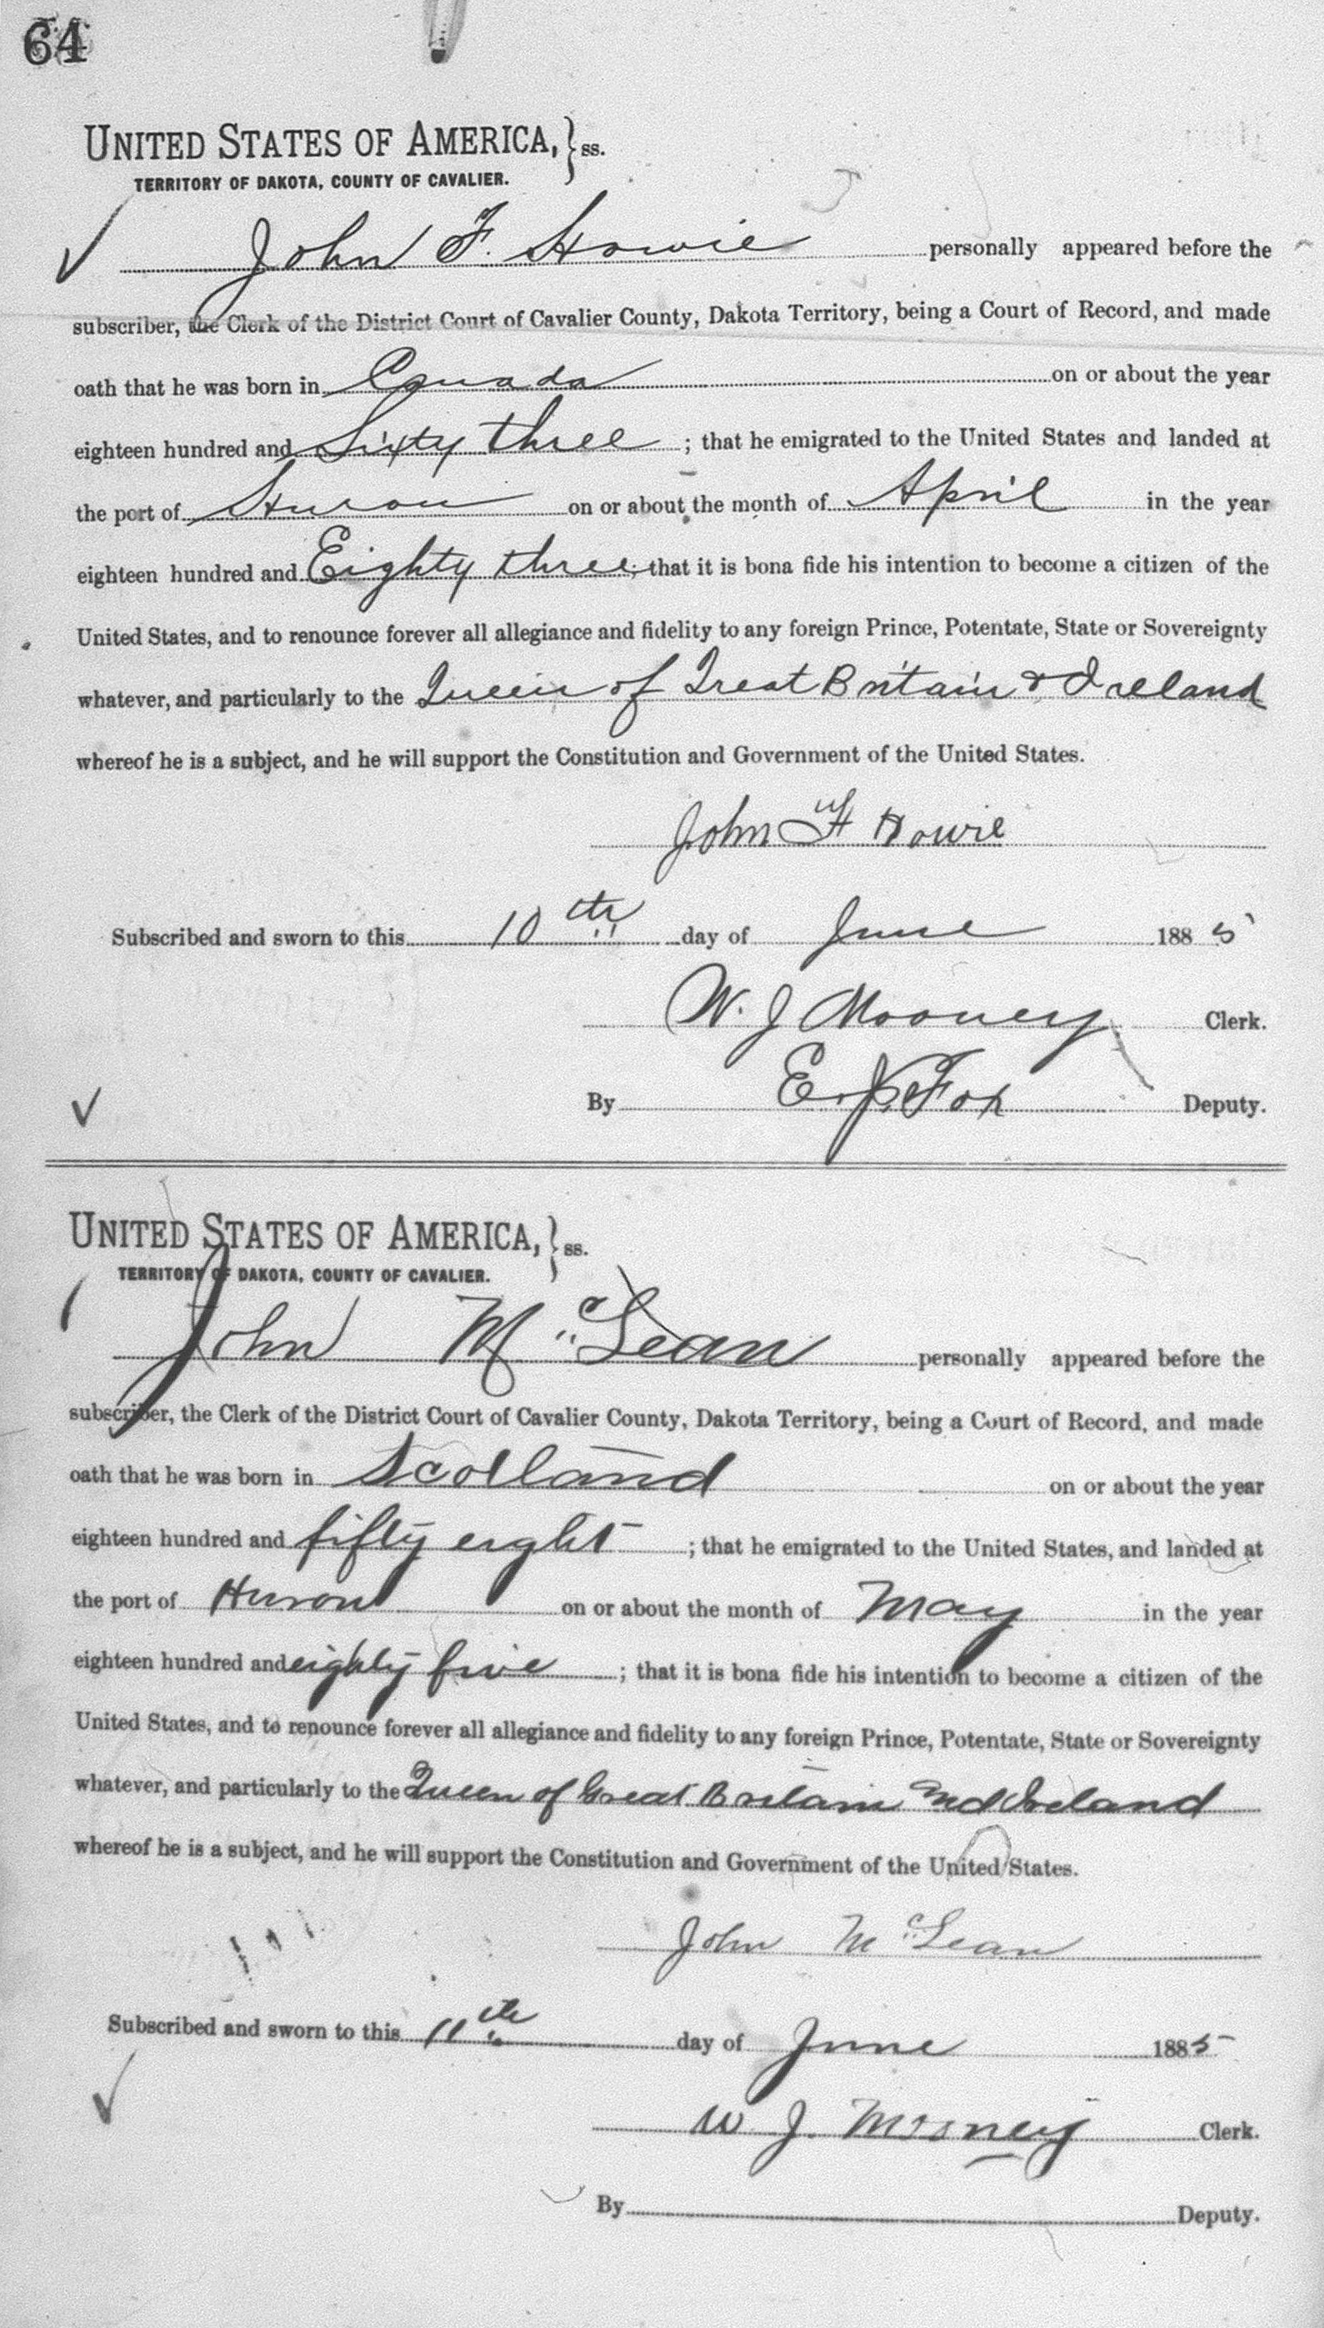 64
UNITED STATES OF AMERICA, } ss.
TERRITORY OF DAKOTA, COUNTY OF CAVALIER.
John F. Howie personally appeared before the
subscriber, the Clerk of the District Court of Cavalier County, Dakota Territory, being a Court of Record, and made
oath that he was born in Canada on or about the year
eighteen hundred and Sixty three ; that he emigrated to the United States and landed at
the port of Huron on or about the month of April in the year
eighteen hundred and Eighty three; that it is bona fide his intention to become a citizen of the
United States, and to renounce forever all allegiance and fidelity to any foreign Prince, Potentate, State or Sovereignty
whatever, and particularly to the Queen of Great Britain & Ireland
whereof he is a subject, and he will support the Constitution and Government of the United States.
John F Howie
Subscribed and sworn to this 10th day of June 1885
W. J Mooney Clerk.
By E. J. Fox Deputy.
UNITED STATES OF AMERICA, } ss.
TERRITORY OF DAKOTA, COUNTY OF CAVALIER.
John McLean personally appeared before the
subscriber, the Clerk of the District Court of Cavalier County, Dakota Territory, being a Court of Record, and made
oath that he was born in Scotland on or about the year
eighteen hundred and fifty eight ; that he emigrated to the United States, and landed at
the port of Huron on or about the month of May in the year
eighteen hundred and eighty five ; that it is bona fide his intention to become a citizen of the
United States, and to renounce forever all allegiance and fidelity to any foreign Prince, Potentate, State or Sovereignty
whatever, and particularly to the Queen of Great Britain and Ireland
whereof he is a subject, and he will support the Constitution and Government of the United States.
John McLean
Subscribed and sworn to this 11th day of June 1885
W J. Mooney Clerk.
By Deputy.